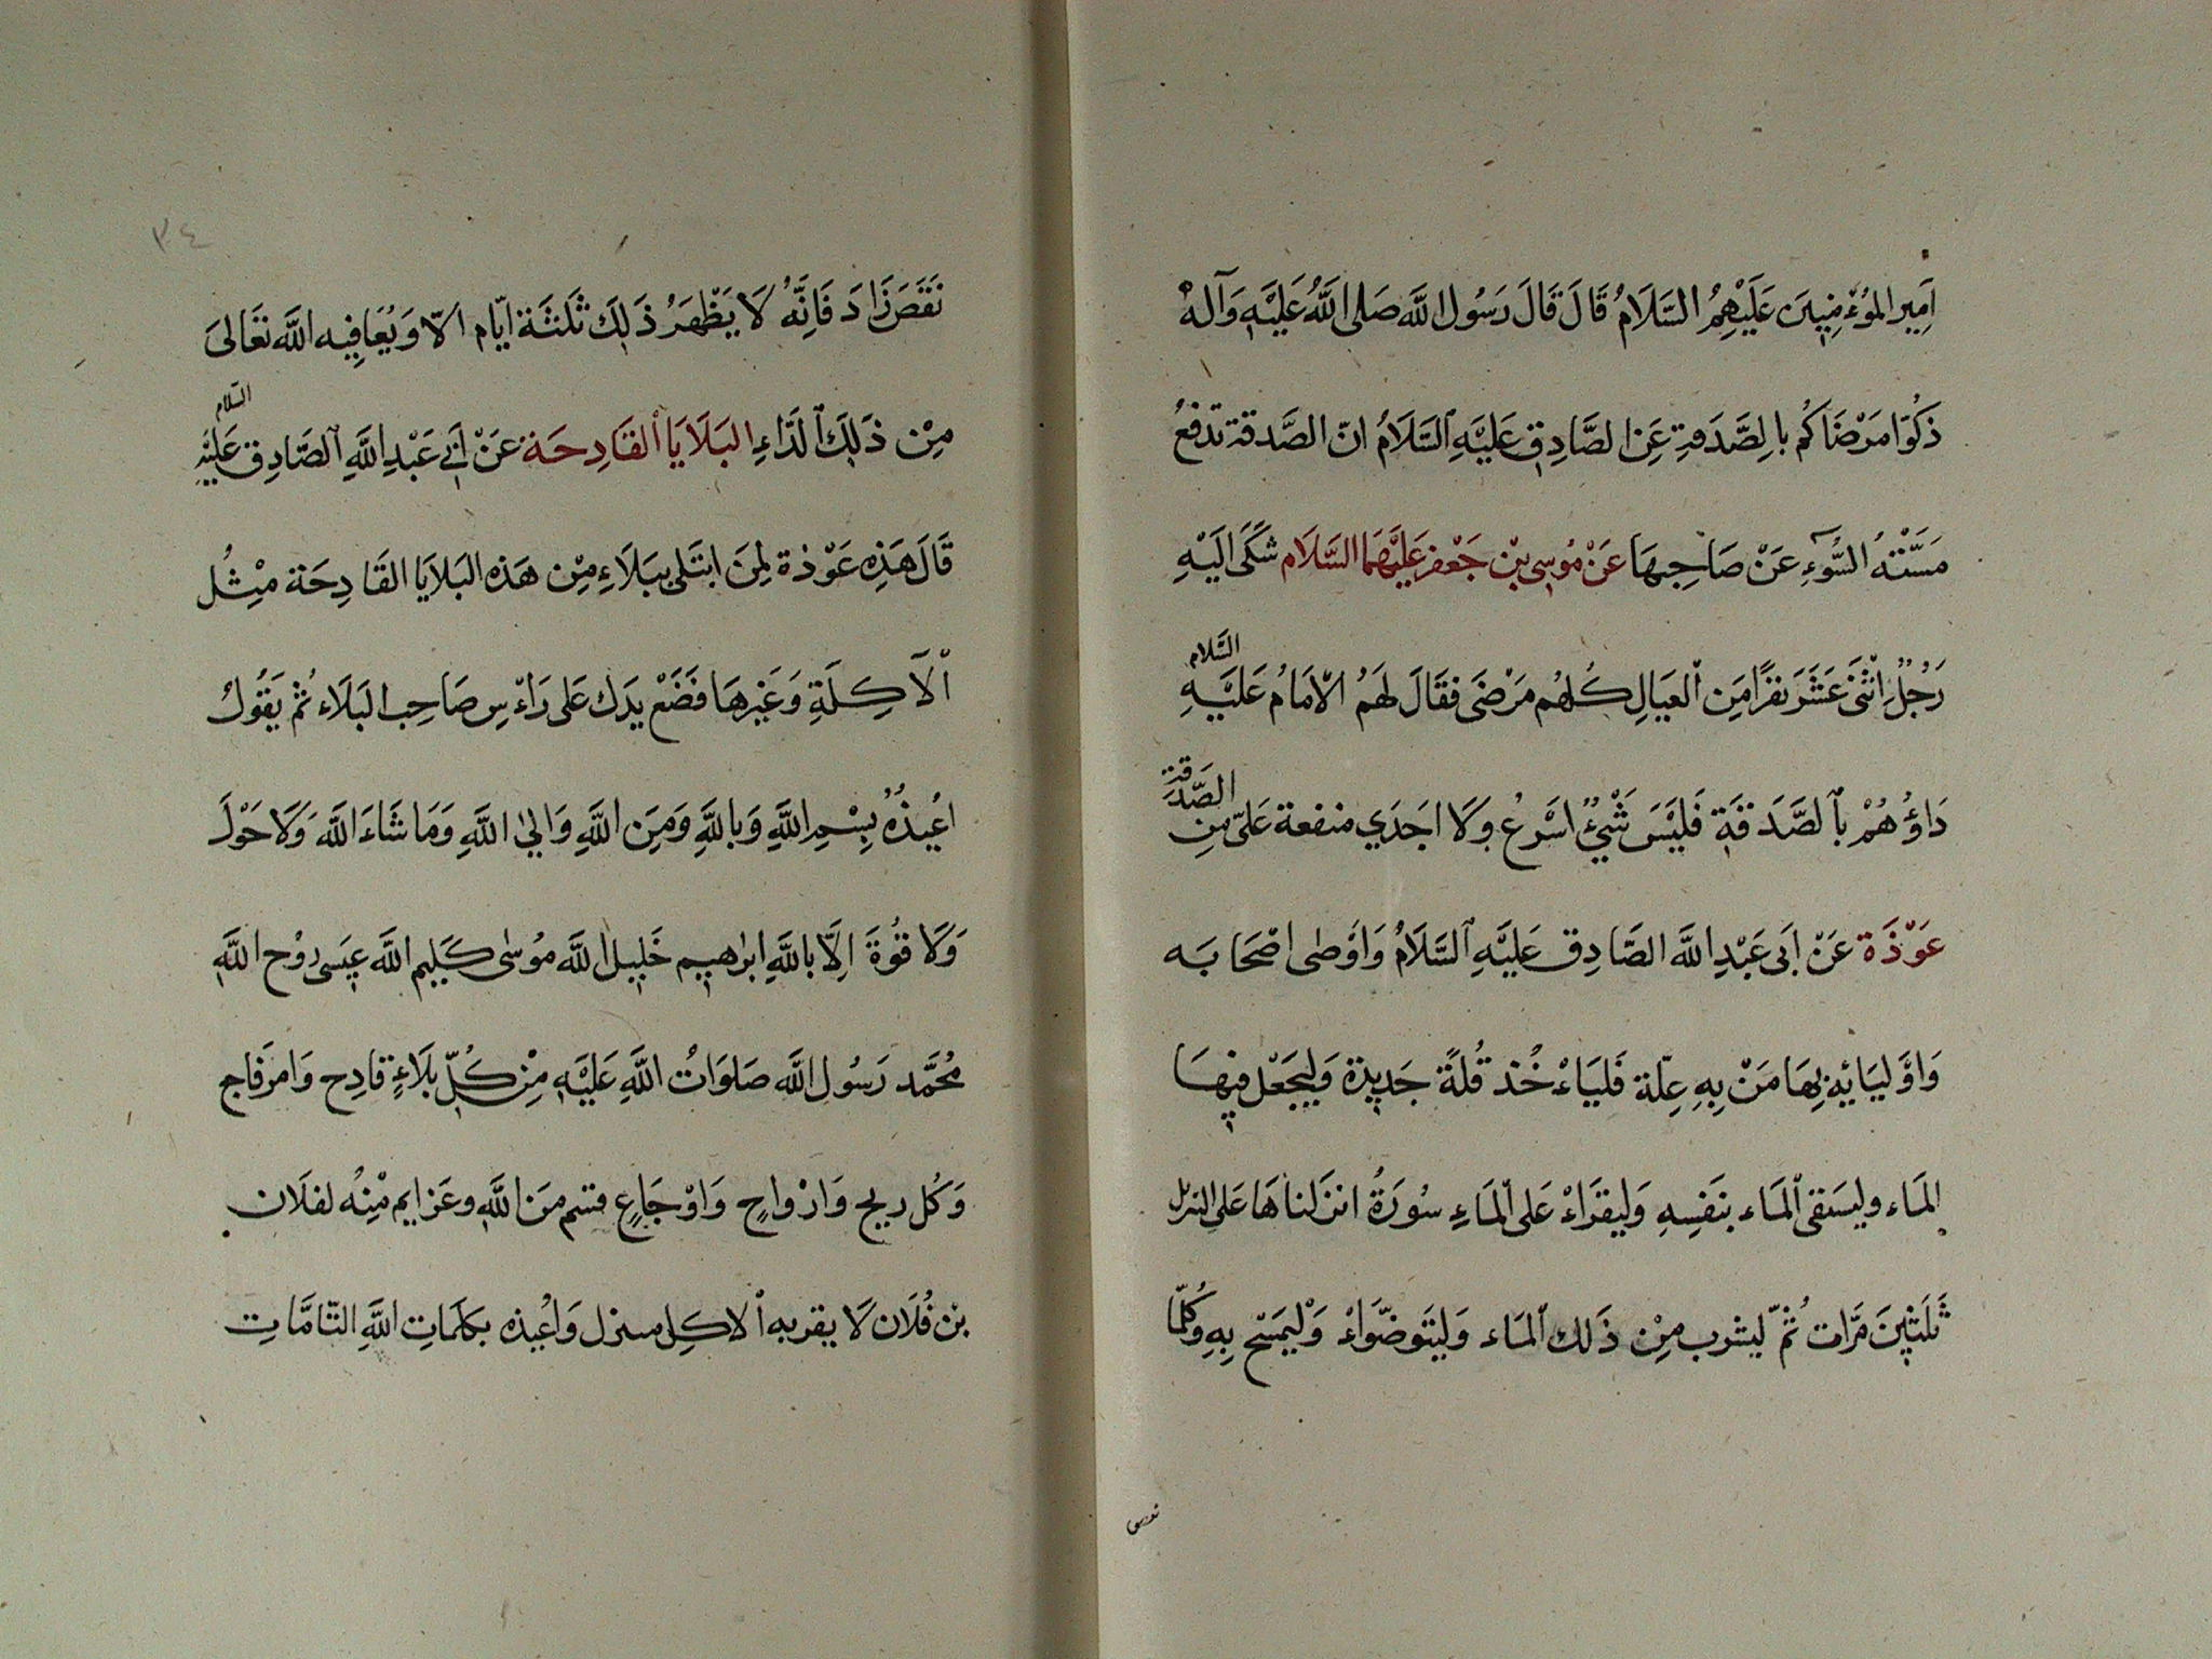 اَمِير المُوْءْمِنِينَ عَلَيْهِمُ السَّلَامُ قَالَ قَالَ رَسُول اللَّه صَلى اللَّهُ عَلَيْهِ وَآلهْ
ذَكُوّا مَرْضَاكُم بالِصَّدَقةِ عَنِ الصَّادِقِ عَلَيْهِ السَّلَامُ انّ الصَّدقة تدْفَعُ
مَسَّتْهُ السُّوَءِ عَنْ صَاحِبِهَا عَنْ مُوسِى بِنْ جَعْفر عَلَيْهمَا السَّلَام شَكَى الَيْهِ
رَجُلٌ اثْنَىْ عَشَرَ نفرًا مَِن العَيَالِ كُلهُم مَرْضَى فقَالَ لهَمُ الْاِمَامُ عَلَيْهِ السَّلام
دَاوُهُمْ بالصَّدَقَةِ فَليْسَ شَيْءٌ اسْرعُ وَلَا اجَدَي منفعة عَلىّ مِنِ الصَّدَقَة
عَوْذَة عَنْ اَبى عَبْدِ اللَّه الصَّادِق عَلَيْهِ السَّلَامُ وَاوْصٰى اصْحَابَه
وَاوْليَائِهِ بِهَا مَنْ بِهِ عِلّة فَليَاءْخُذ قُلةً جَدِيدَة وَليَجْعَل فِيهَا
المَاء وليسَتقى المَاء بنَفسِهِ وَليقرَاءْ عَلى المَاءِ سُورَةُ انزَلناهَا عَلى الترتل
ثَلَثِينَ مَرّات ثُمّ ليشرب مِنْ ذَلك المَاء وَليتَوضّوَاءْ وَلْيمَسَح بِهِ وَكُلمَّا
نقص
٣٤
نَقَصَ زَادَ فَاِنَّهُ لَا يَظْهَرُ ذَلِكَ ثَلَثَة ايّام الّا وَيُعَافِيه اللَّه تعَالىَ
مِنْ ذَلِكَ الدَّاءِ البَلَايَا القَادِحَة عَنْ اَبِي عَبْدِ اللَّهِ الصَّادِق عَلَيْهِ السَّلام
قَالَ هَذِهِ عَوْذة لِمَنَ ابتَلى بَبلَاءِ مِنْ هَذه البَلايَا القَادِحَة مْثِل
الْآكِلَةِ وَغَيْرهَا فَضَعْ يدَك عَلى رَاءْسِ صَاحِب البَلَاء ثُمْ يَقُولُ
اعُيذُهُ بِسْمِ اللَّهِ وَبِاللَّهِ وَمَِن اللَّهِ وَالِىٰ اللَّهِ وَمَا شَاءَ اللَّه وَلَا حَوْلَ
وَلَا قُوةَ اِلّا باللَّهِ ابرٰهيم خَليل اللَّه مُوسٰى كَليم اللَّه عيسَى رُوْح اللَّهِ
مُحَمَّد رَسُول اللَّه صَلوَاتُ اللَّهِ عَلَيْهِ مِنْ كُلّ بَلَاءٍ قادِح وَامرفَاجِ
وَكُل ريح وَارْوَاحٍ وَاوْجَاعٍ قسم مَن اللَّهِ وعَزايم مْنِهُ لفلَان
بْن فُلَان لَا يقربه الاكِل منزل وَاُعْيذه بكَلمَاتِ اللَّهِ التّامَّاتِ